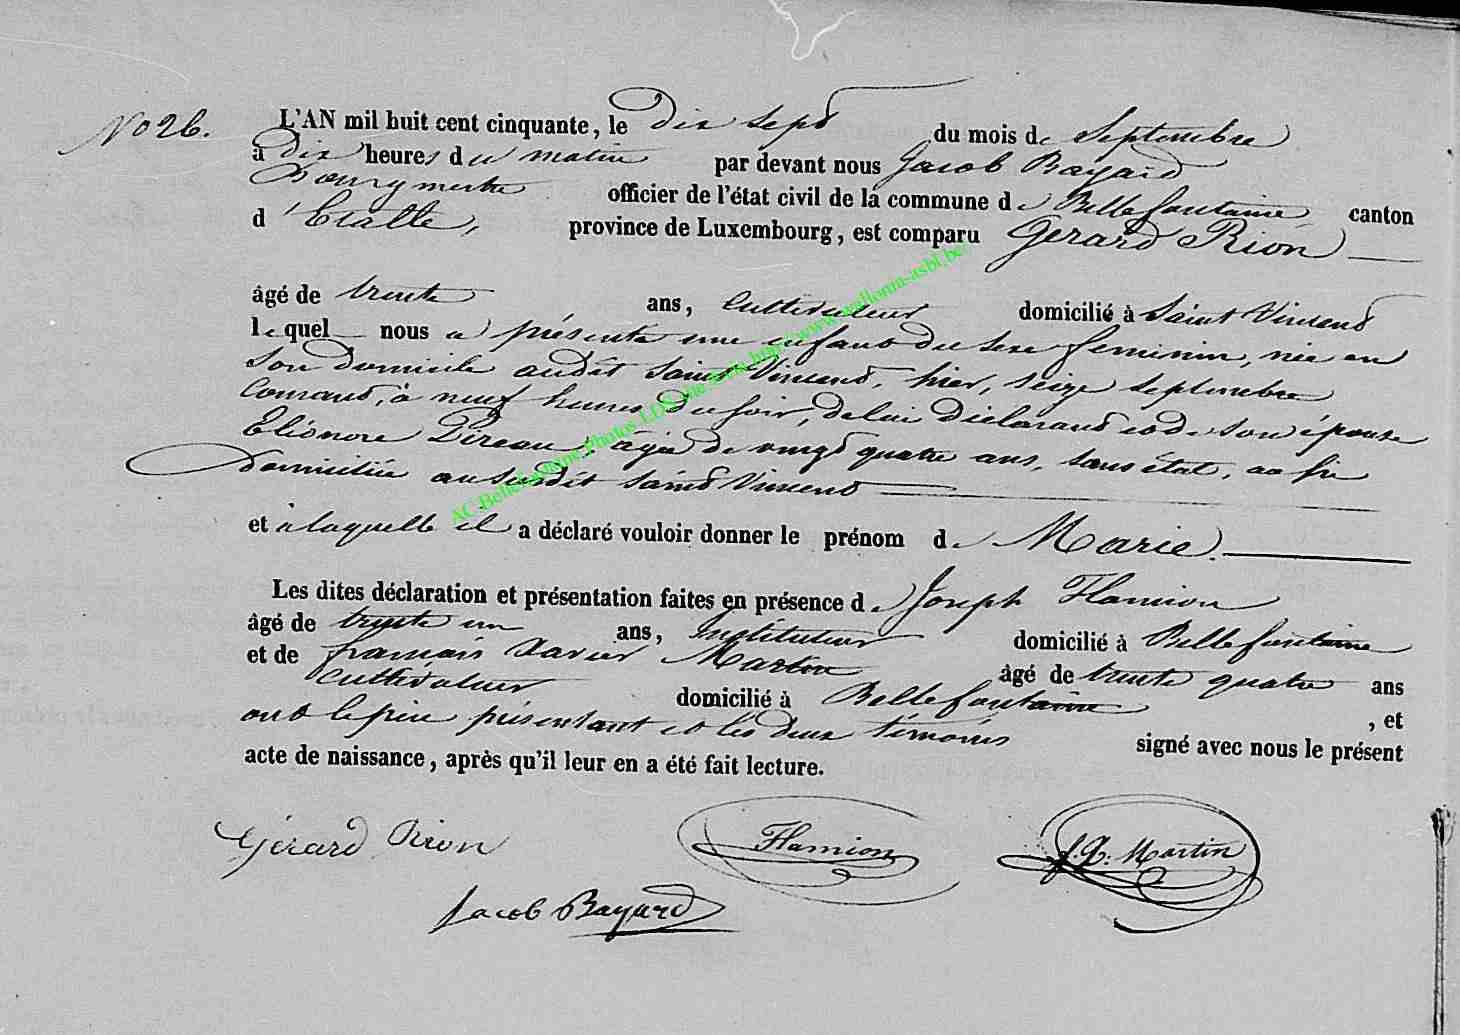 No 26.
L'AN mil huit cent cinquante, le dix sept du mois de Septembre
à dix heures du matin par devant nous Jacob Bayard
Bourgmestre officier de l'état civil de la commune de Bellefontaine canton
d'Etalle, province de Luxembourg, est comparu Gerard Rion
âgé de trente ans, Cultivateur domicilié à Saint Vincent
lequel nous a présenté une enfant du sexe feminin, née en
son domicile audit Saint Vincent, hier, seize septembre
Courant, à neuf heures du soir, de lui déclarant et de son épouse
Eléonore Pireau, agée de vingt quatre ans, sans état, au fie
domiciliée au susdit Saint Vincent
et à laquelle il a déclaré vouloir donner le prénom de Marie.
Les dites déclaration et présentation faites en présence de Joseph Flamion
âgé de trente un ans, Instituteur domicilié à Bellefontaine
et de françois Xavier Martin âgé de trente quatre ans
Cultivateur domicilié à Bellefontaine , et
ont le père présentant et les deux témoins signé avec nous le présent
acte de naissance, après qu'il leur en a été fait lecture.
Gérard Rion Flamion f. X. Martin
Jacob Bayard
AC Bellefontaine Photos LDS via Ecta http://www.wallonia-asbl.be/